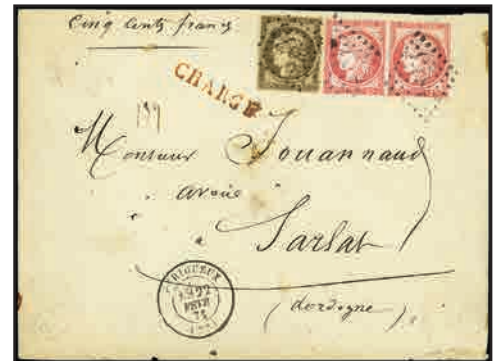 Cinq cents francs
CHARGÉ
Monsieur Jouannaud
avoué
à Sarlat
PERIGUEUX
22
FEVR
(dordogne)